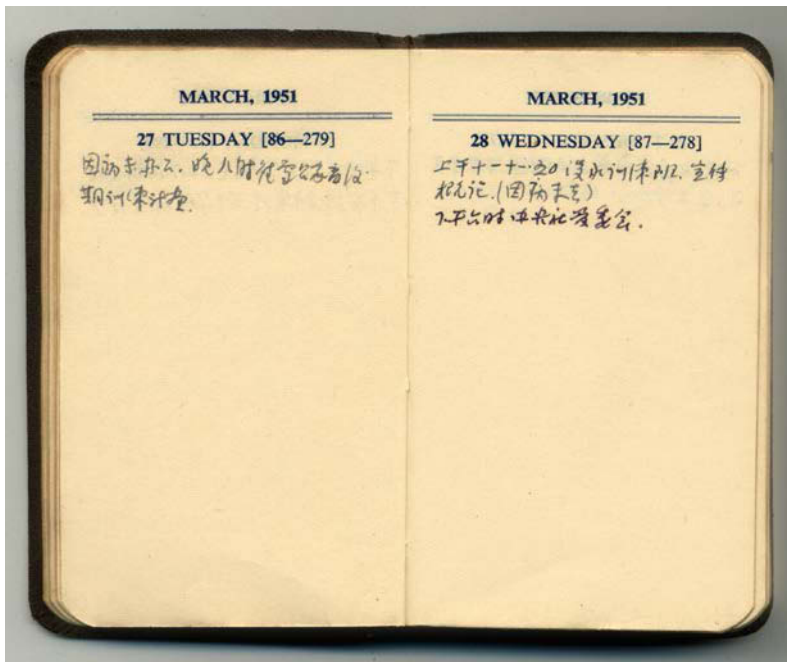 MARCH, 1951
27 TUESDAY [86—279]
因病未办公. 晚八时
期训练计划.
MARCH, 1951
28 WEDNESDAY [87—278]
上午十一十·20 淡水训练班. 宣传
概论.(因病未去)
下午六时中央社管委会.